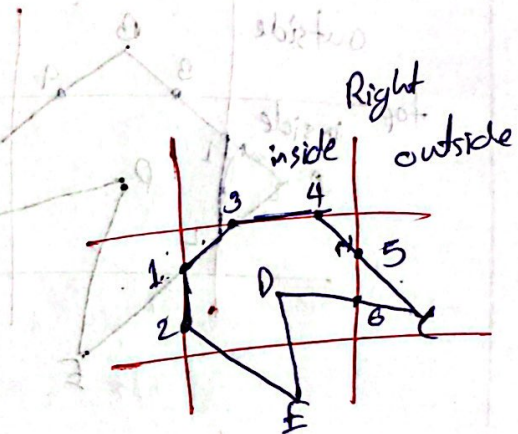 Right
inside
outside
3
4
1
5
D
6
C
2
E